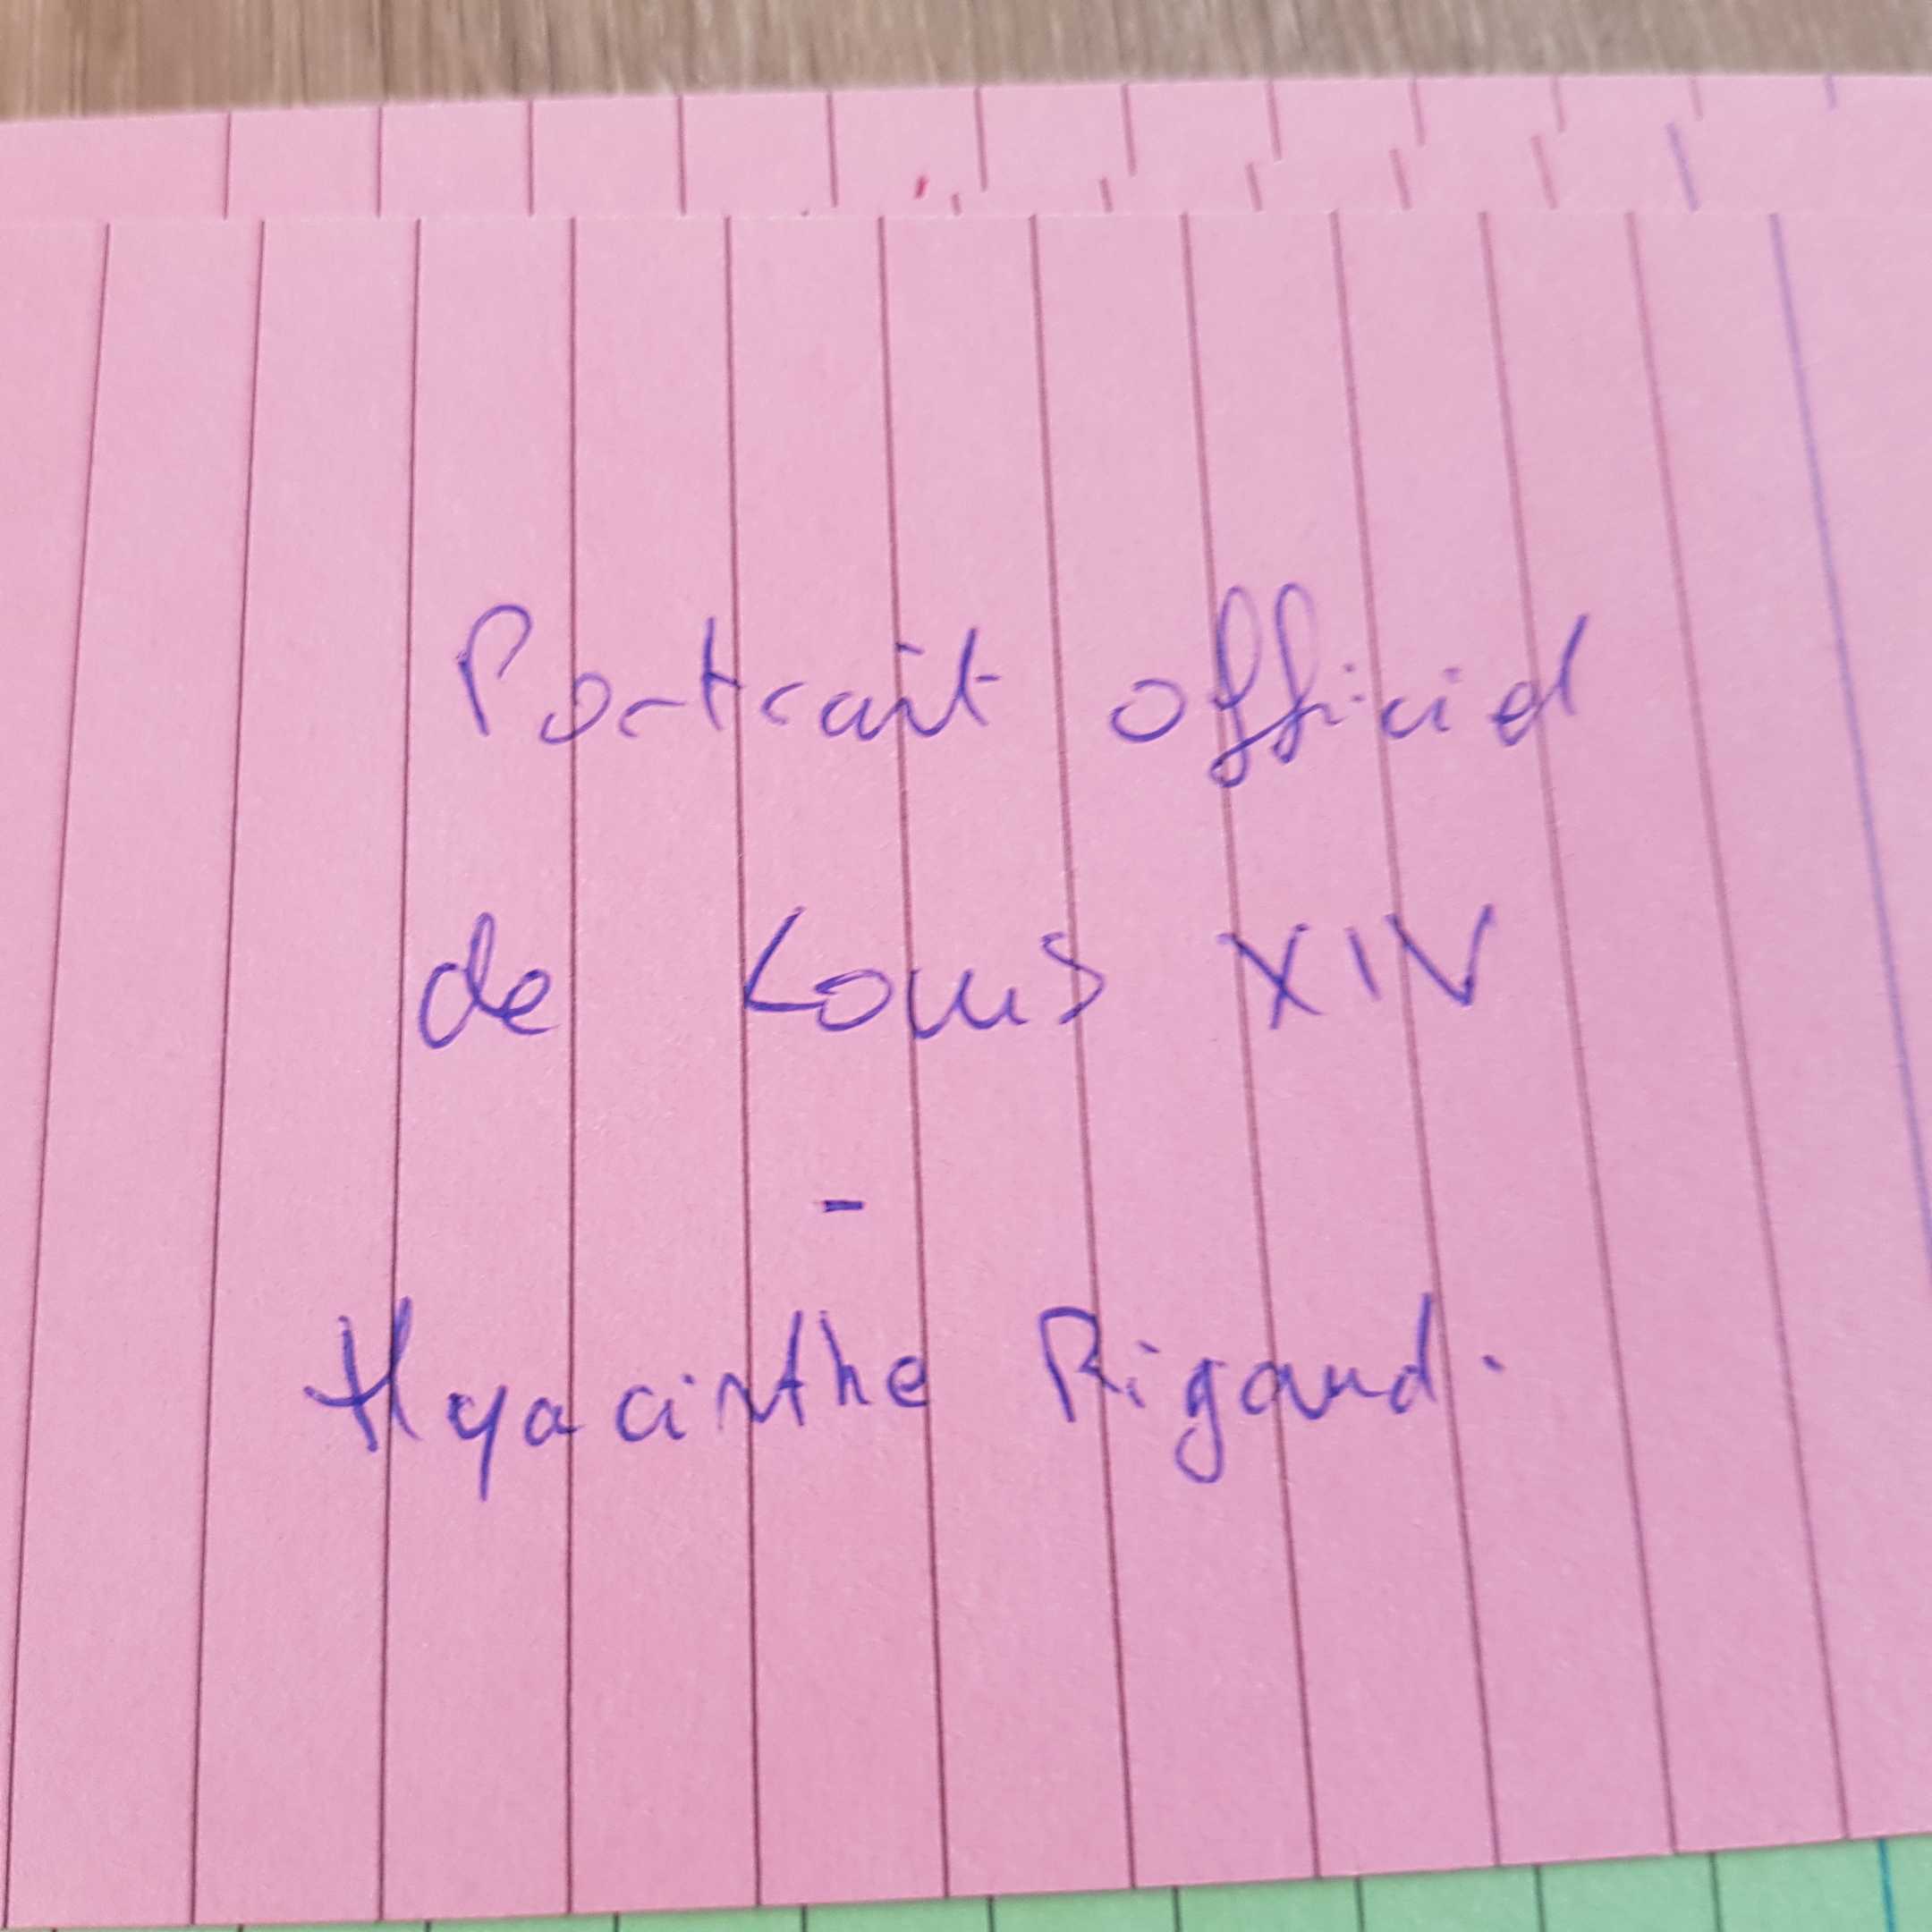 Portrait officiel
de Louis XIV
-
Hyacinthe Rigaud.